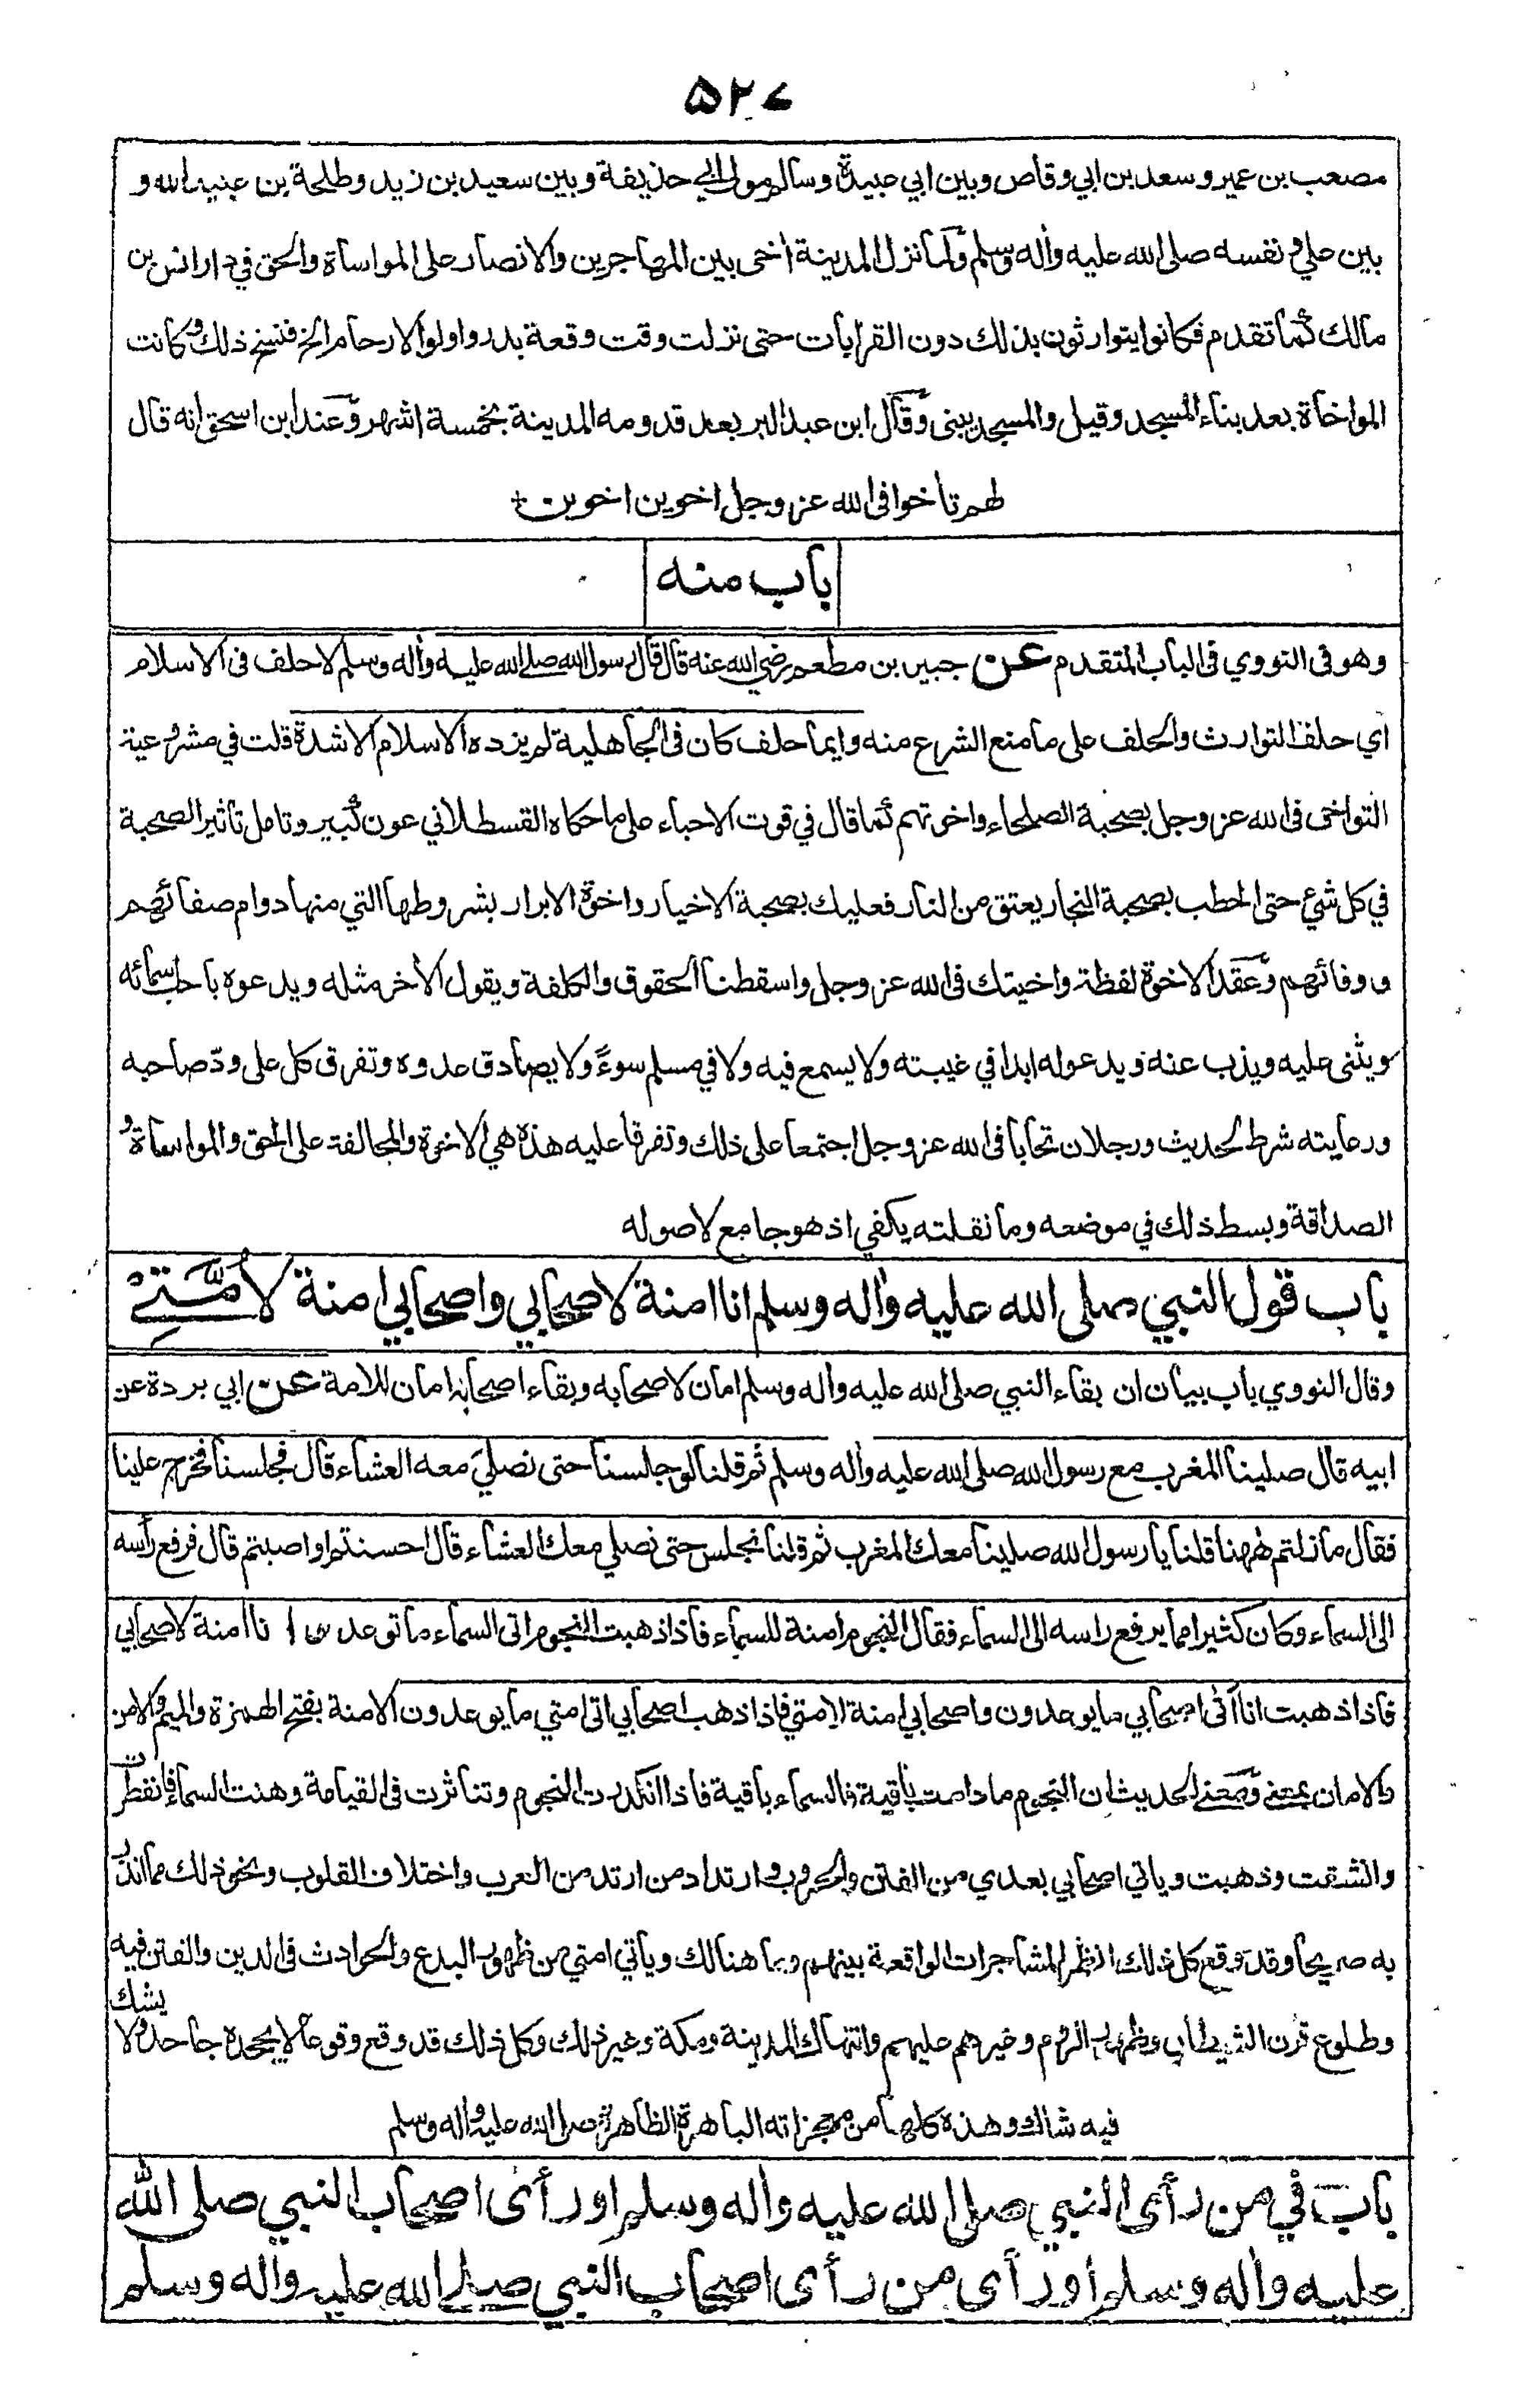 ۵۲۷
مصعب بن عمير وسعد بن ابي وقاص وبين ابي عبيدة وسالم مولى ابي حذيفة وبين سعيد بن زيد وطلحة بن عبيد الله و
بين علي ونفسه صلى الله عليه واله وسلم ولما نزل المدينة اخى بين المهاجرين والانصار على المواساة والحق في دار انس بن
مالك كما تقدم فكانوا يتوارثون بذلك دون القرابات حتى نزلت وقت وقعة بدر واولوا الارحام الخ فنسخ ذلك وكانت
المواخاة بعد بناء المسجد وقيل والمسجد يبنى وقال ابن عبد البر بعد قدومه المدينة بخمسة اشهر وعند ابن اسحق انه قال
لهم تأخوا في الله عز وجل اخوين اخوين
باب منه
وهو في النووي في الباب المتقدم عن جبير بن مطعم رضي الله عنه قال قال رسول الله صلى الله عليه واله وسلم لا حلف في الاسلام
اي حلف التوارث والحلف على ما منع الشرع منه وايما حلف كان في الجاهلية لم يزده الاسلام الا شدة قلت في مشروعية
التواخى في الله عز وجل بصحبة الصلحاء واخوتهم كما قال في قوت الاحباء على ما حكاه القسطلاني عون كبير وتامل تاثير الصحبة
في كل شيء حتى الحطب بصحبة النجار يعتق من النار فعليك بصحبة الاخيار واخوة الابرار بشروطها التي منها دوام صفائهم
ووفائهم وعقد الاخوة لفظة واخيتك في الله عز وجل واسقطنا الحقوق والكلفة ويقول الاخر مثله ويدعوه باحب اسمائه
ويثنى عليه ويذب عنه ويدعو له ابدا في غيبته ولا يسمع فيه ولا في مسلم سوءً ولا يصادق عدوه وتفرق كل على ودّ صاحبه
ورعايته شرط الحديث ورجلان تحابا في الله عز وجل اجتمعا على ذلك وتفرقا عليه هذه هي الاخوة والمحالفة على الحق والمواساة و
الصداقة وبسط ذلك في موضعه وما نقلته يكفي اذ هو جامع لاصوله
باب قول النبي صلى الله عليه واله وسلم انا امنة لاصحابي واصحابي امنة لامتي
وقال النووي باب بيان ان بقاء النبي صلى الله عليه واله وسلم امان لاصحابه وبقاء اصحابه امان للامة عن ابي بردة عن
ابيه قال صلينا المغرب مع رسول الله صلى الله عليه واله وسلم ثم قلنا لو جلسنا حتى نصلي معه العشاء قال فجلسنا فخرج علينا
فقال ما زلتم ههنا قلنا يا رسول الله صلينا معك المغرب ثم قلنا نجلس حتى نصلي معك العشاء قال احسنتم او اصبتم قال فرفع رأسه
الى السماء وكان كثيرا مما يرفع راسه الى السماء فقال النجوم امنة للسماء فاذا ذهبت النجوم اتى السماء ما توعد انا امنة لاصحابي
فاذا ذهبت انا أتى اصحابي ما يوعدون واصحابي امنة لامتي فاذا ذهب اصحابي اتى امتي ما يوعدون الامنة بفتح الهمزة والميم والامن
والامان بمعنى ومعنى الحديث ان النجوم ما دامت باقية فالسماء باقية فاذا انكدرت النجوم وتناثرت في القيامة وهنت السماء فانفطرت
وانشقت وذهبت وياتي اصحابي بعدي من الفتن والحروب وارتداد من ارتد من العرب واختلاف القلوب ونحو ذلك مما انذر
به صريحا وقد وقع كل ذلك انظر المشاجرات الواقعة بينهم وما هنالك وياتي امتي من ظهور البدع والحوادث في الدين والفتن فيه
وطلوع قرن الشيطان وظهور الروم وغيرهم عليهم وانتهاك المدينة ومكة وغير ذلك وكل ذلك قد وقع وقوعا لا يجحده جاحد ولا يشك
فيه شاك وهذه كلها من معجزاته الباهرة الظاهرة صلى الله عليه واله وسلم
باب في من رأى النبي صلى الله عليه واله وسلم او رأى اصحاب النبي صلى الله
عليه واله وسلم او رأى من رأى اصحاب النبي صلى الله عليه واله وسلم